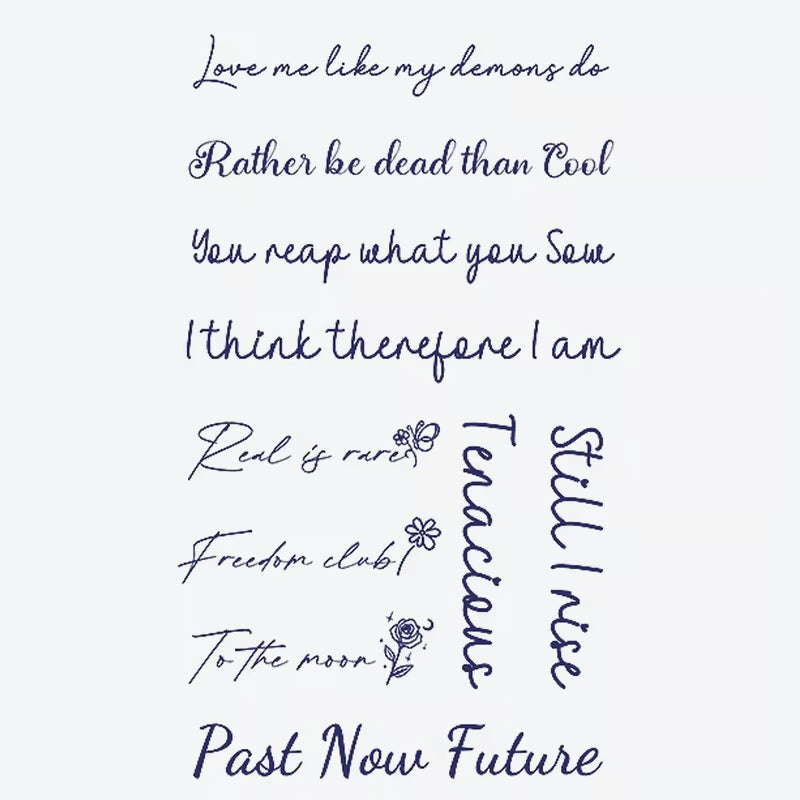 Love me like my demons do
Rather be dead than Cool
You reap what you Sow
I think therefore I am
Real is rare
Freedom club
To the moon
Tenacious
Still I rise
Past Now Future